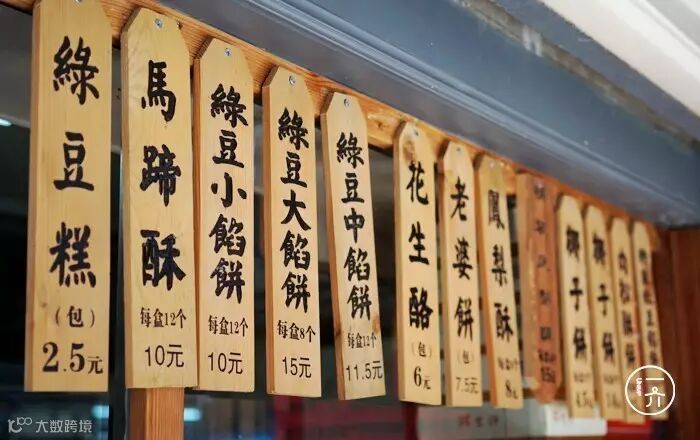 綠豆糕
(包)
2.5元
馬蹄酥
每盒12个
10元
綠豆小餡餅
每盒12个
10元
綠豆大餡餅
每盒8个
15元
綠豆中餡餅
11.5元
花生酪
(包)
6元
老婆餅
(包)
7.5元
鳳梨酥
每盒
8元
椰子餅
椰子餅
一介
大数跨境